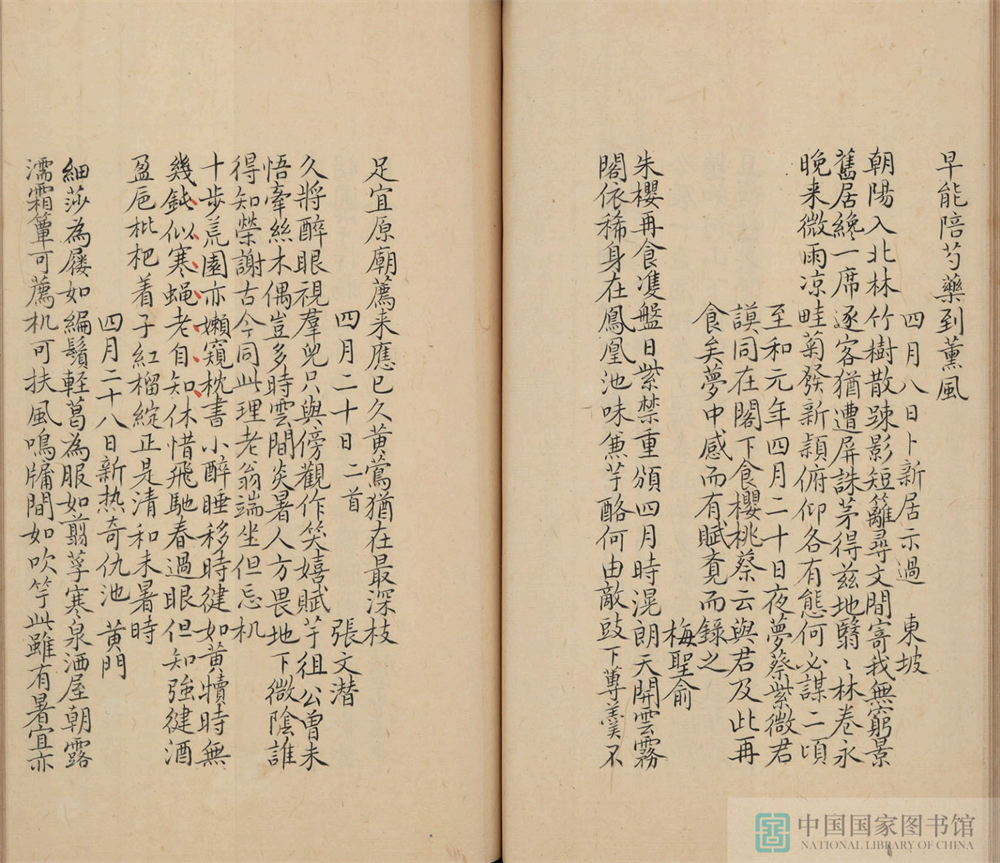 早能陪芍藥到薰風
四月八日卜新居示過　東坡
朝陽入北林竹樹散踈影短籬尋丈間寄我無窮景
舊居纔一席逐客猶遭屏誅茅得兹地翳〻林巷永
晚来微雨凉畦菊發新穎俯仰各有態何必謀二頃
至和元年四月二十日夜夢蔡紫微君
謨同在閣下食櫻桃蔡云與君及此再
食矣夢中感而有賦覔而録之
梅聖俞
朱櫻再食䨇盤日紫禁重頒四月時滉朗天開雲霧
閣依稀身在鳳凰池味兼芋酪何由敵豉下蓴羹不
足宜原廟薦来應已久黄鶯猶在最深枝
四月二十日二首　張文潛
久將醉眼視羣兒只與傍觀作笑嬉賦芋徂公曾未
悟牽絲木偶豈多時雲間炎暑人方畏地下微陰誰
得知榮謝古今同此理老翁端坐但忘机
十步荒園亦嬾窺枕書小醉睡移時健如黄犢時無
幾鈍似寒蝇老自知休惜飛馳春過眼但知強健酒
盈巵枇杷着子紅榴綻正是清和未暑時
四月二十八日新热奇仇池　黄門
細莎為屦如編鬚輕葛為服如翦莩寒泉洒屋朝露
濡霜簟可薦机可扶風鳴牖間如吹竽此雖有暑宜亦
中国国家图书馆
NATIONAL LIBRARY OF CHINA